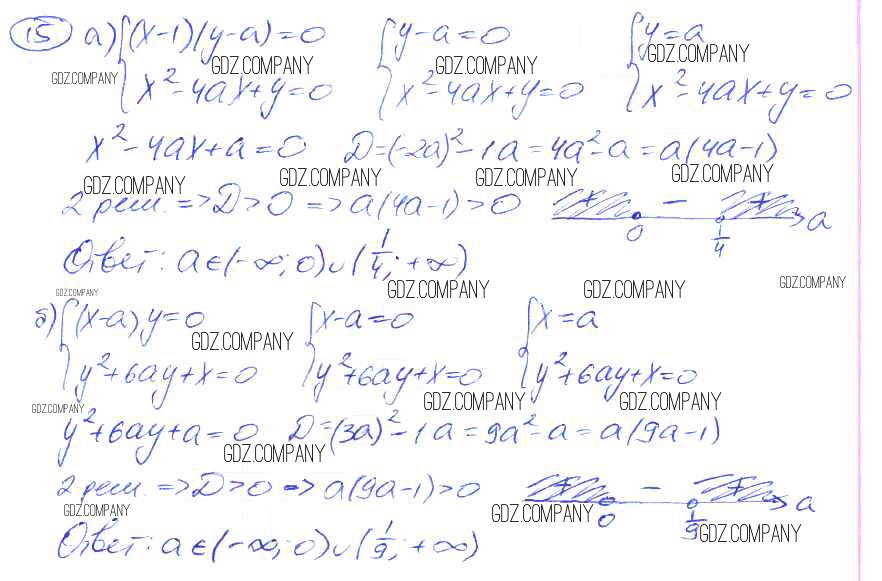 15 а) {(x-1)(y-a)=0 {y-a=0 {y=a
{x²-4ax+y=0 {x²-4ax+y=0 {x²-4ax+y=0
GDZ.COMPANY GDZ.COMPANY GDZ.COMPANY GDZ.COMPANY
x²-4ax+a=0 D=(-2a)²-1a=4a²-a=a(4a-1)
GDZ.COMPANY GDZ.COMPANY GDZ.COMPANY GDZ.COMPANY
2 реш. => D>0 => a(4a-1)>0 + - + 0 1/4 a
Ответ: a∈(-∞;0)∪(1/4;+∞)
GDZ.COMPANY GDZ.COMPANY GDZ.COMPANY GDZ.COMPANY
б) {(x-a)y=0 {x-a=0 {x=a
GDZ.COMPANY
{y²+6ay+x=0 {y²+6ay+x=0 {y²+6ay+x=0
GDZ.COMPANY GDZ.COMPANY GDZ.COMPANY
y²+6ay+a=0 D=(3a)²-1a=9a²-a=a(9a-1)
GDZ.COMPANY
2 реш. => D>0 => a(9a-1)>0 + - + 0 1/9 a
GDZ.COMPANY GDZ.COMPANY GDZ.COMPANY
Ответ: a∈(-∞;0)∪(1/9;+∞)